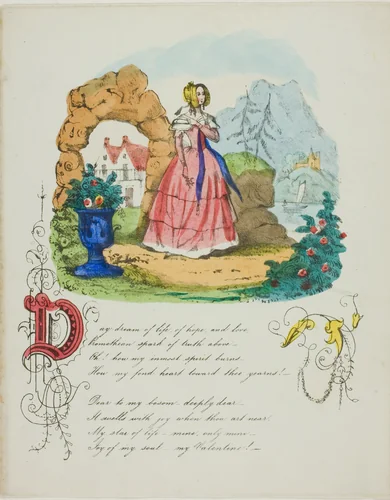 Day dream of life, of hope, and love,
Promethean spark of truth above.
Oh! how my inmost spirit burns.
How my fond heart toward thee yearns!—
Dear to my bosom, deeply dear—
It swells with joy when thou art near.
My star of life—mine, only mine—
Joy of my soul—my Valentine!—